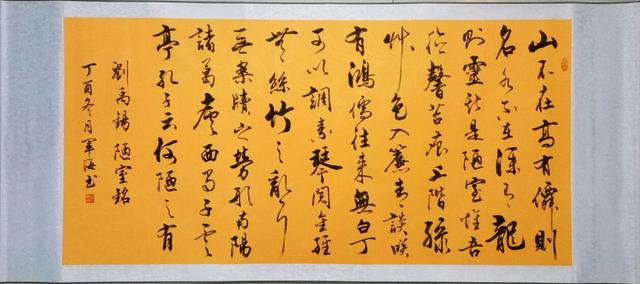 山不在高有僊則
名水不在深有龍
則靈斯是陋室惟吾
德馨苔痕上階綠
艸色入簾青談咲
有鴻儒往來無白丁
可以調素琴閱金經
無絲竹之亂耳
无案牘之勞形南陽
諸葛廬西蜀子雲
亭孔子云何陋之有
劉禹錫陋室銘
丁酉冬月軍海書